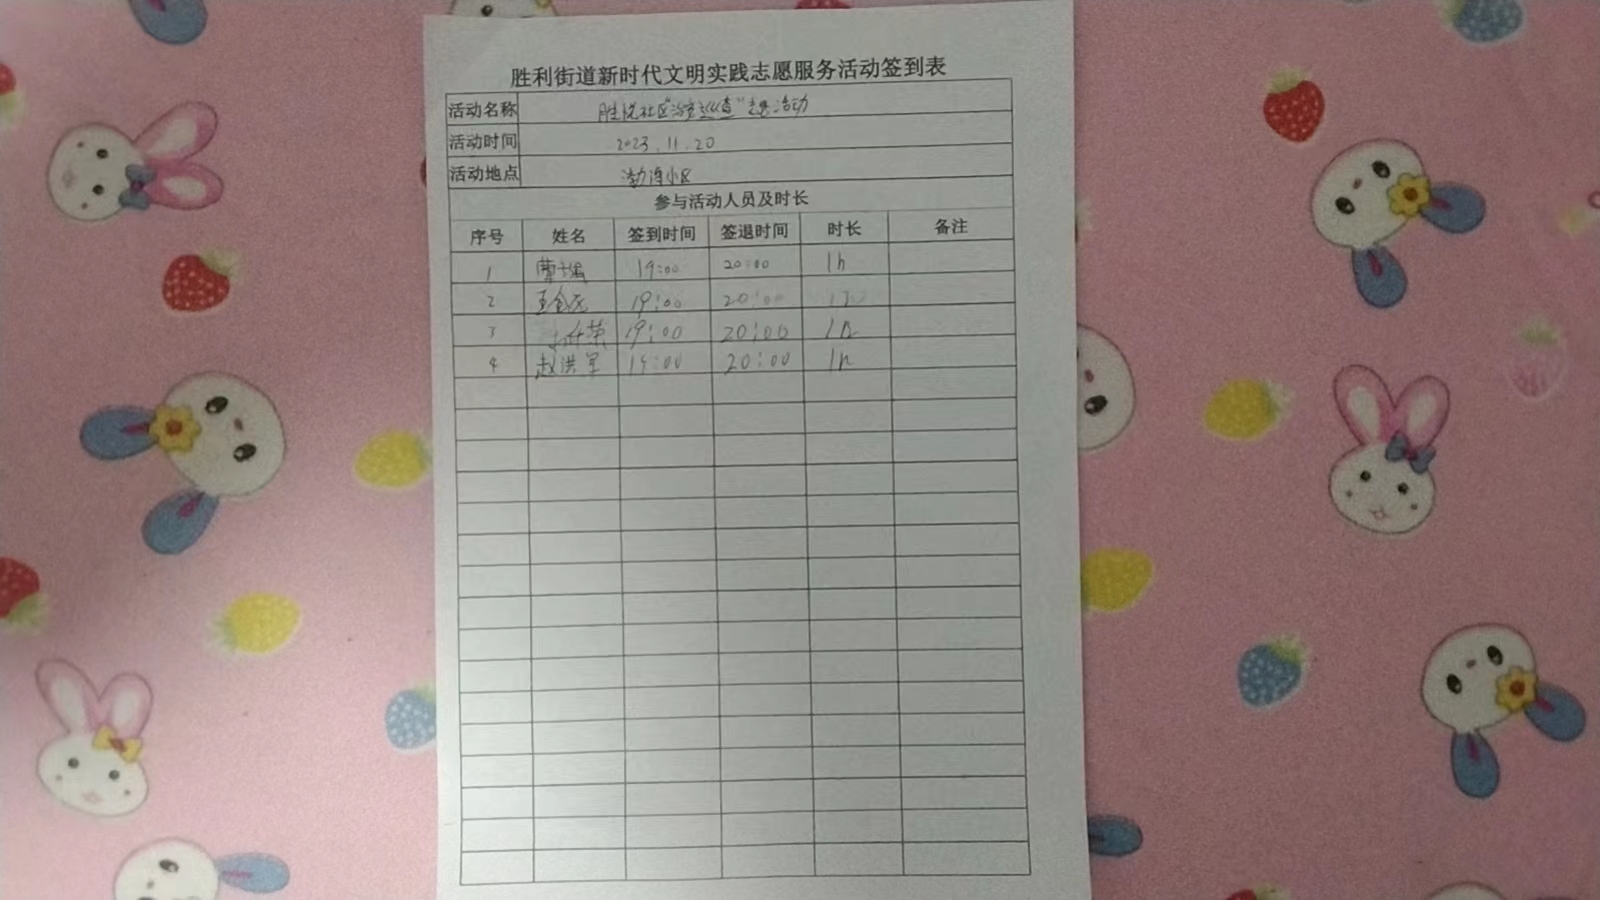 胜利街道新时代文明实践志愿服务活动签到表
活动名称 胜悦社区"治安巡查"志愿活动
活动时间 2023.11.20
活动地点 小区
参与活动人员及时长
序号 姓名 签到时间 签退时间 时长 备注
1 19:00 20:00 1h
2 19:00 20:00
3 19:00 20:00 1h
4 赵洪军 19:00 20:00 1h